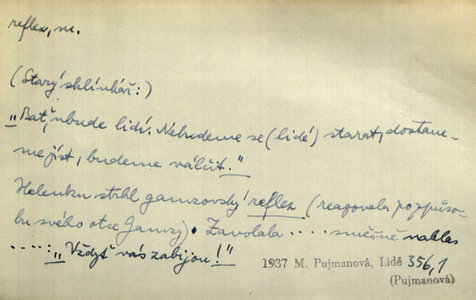 reflex, m.
(Starý sklínkář:)
„Bať, nbude lidí. Nebudeme se (lidé) starat, dostane-
me jíst, budeme válčit."
Helenku strhl gamzovský reflex (reagovala po způso-
bu svého otce Gamzy). Zavolala .... směšně nahlas
....: „Vždyť vás zabijou!"
1937 M. Pujmanová, Lidé 356,1
(Pujmanová)